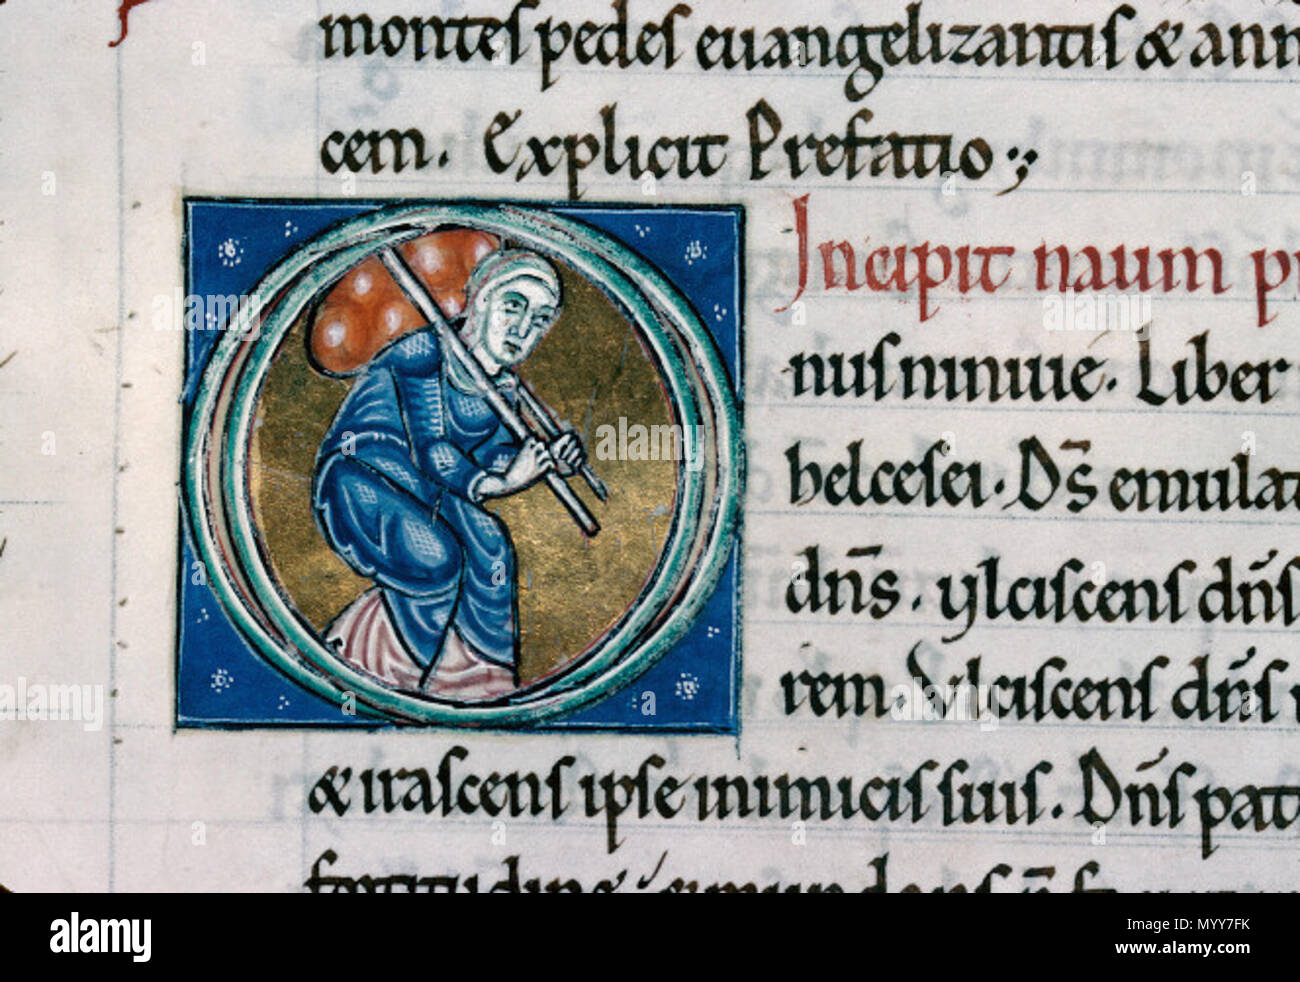 montes pedes euangelizantis & ann
cem. Explicit Prefatio
Incipit naum p
nus niniuie. Liber
helcesei. Dn̄s emulat
dn̄s. ylciscens dn̄s
rem. Vlciscens dn̄s
& irascens ipse inimicis suis. Dn̄s pat
fortitudine
alamy
Image ID: M1YY7FK
www.alamy.com